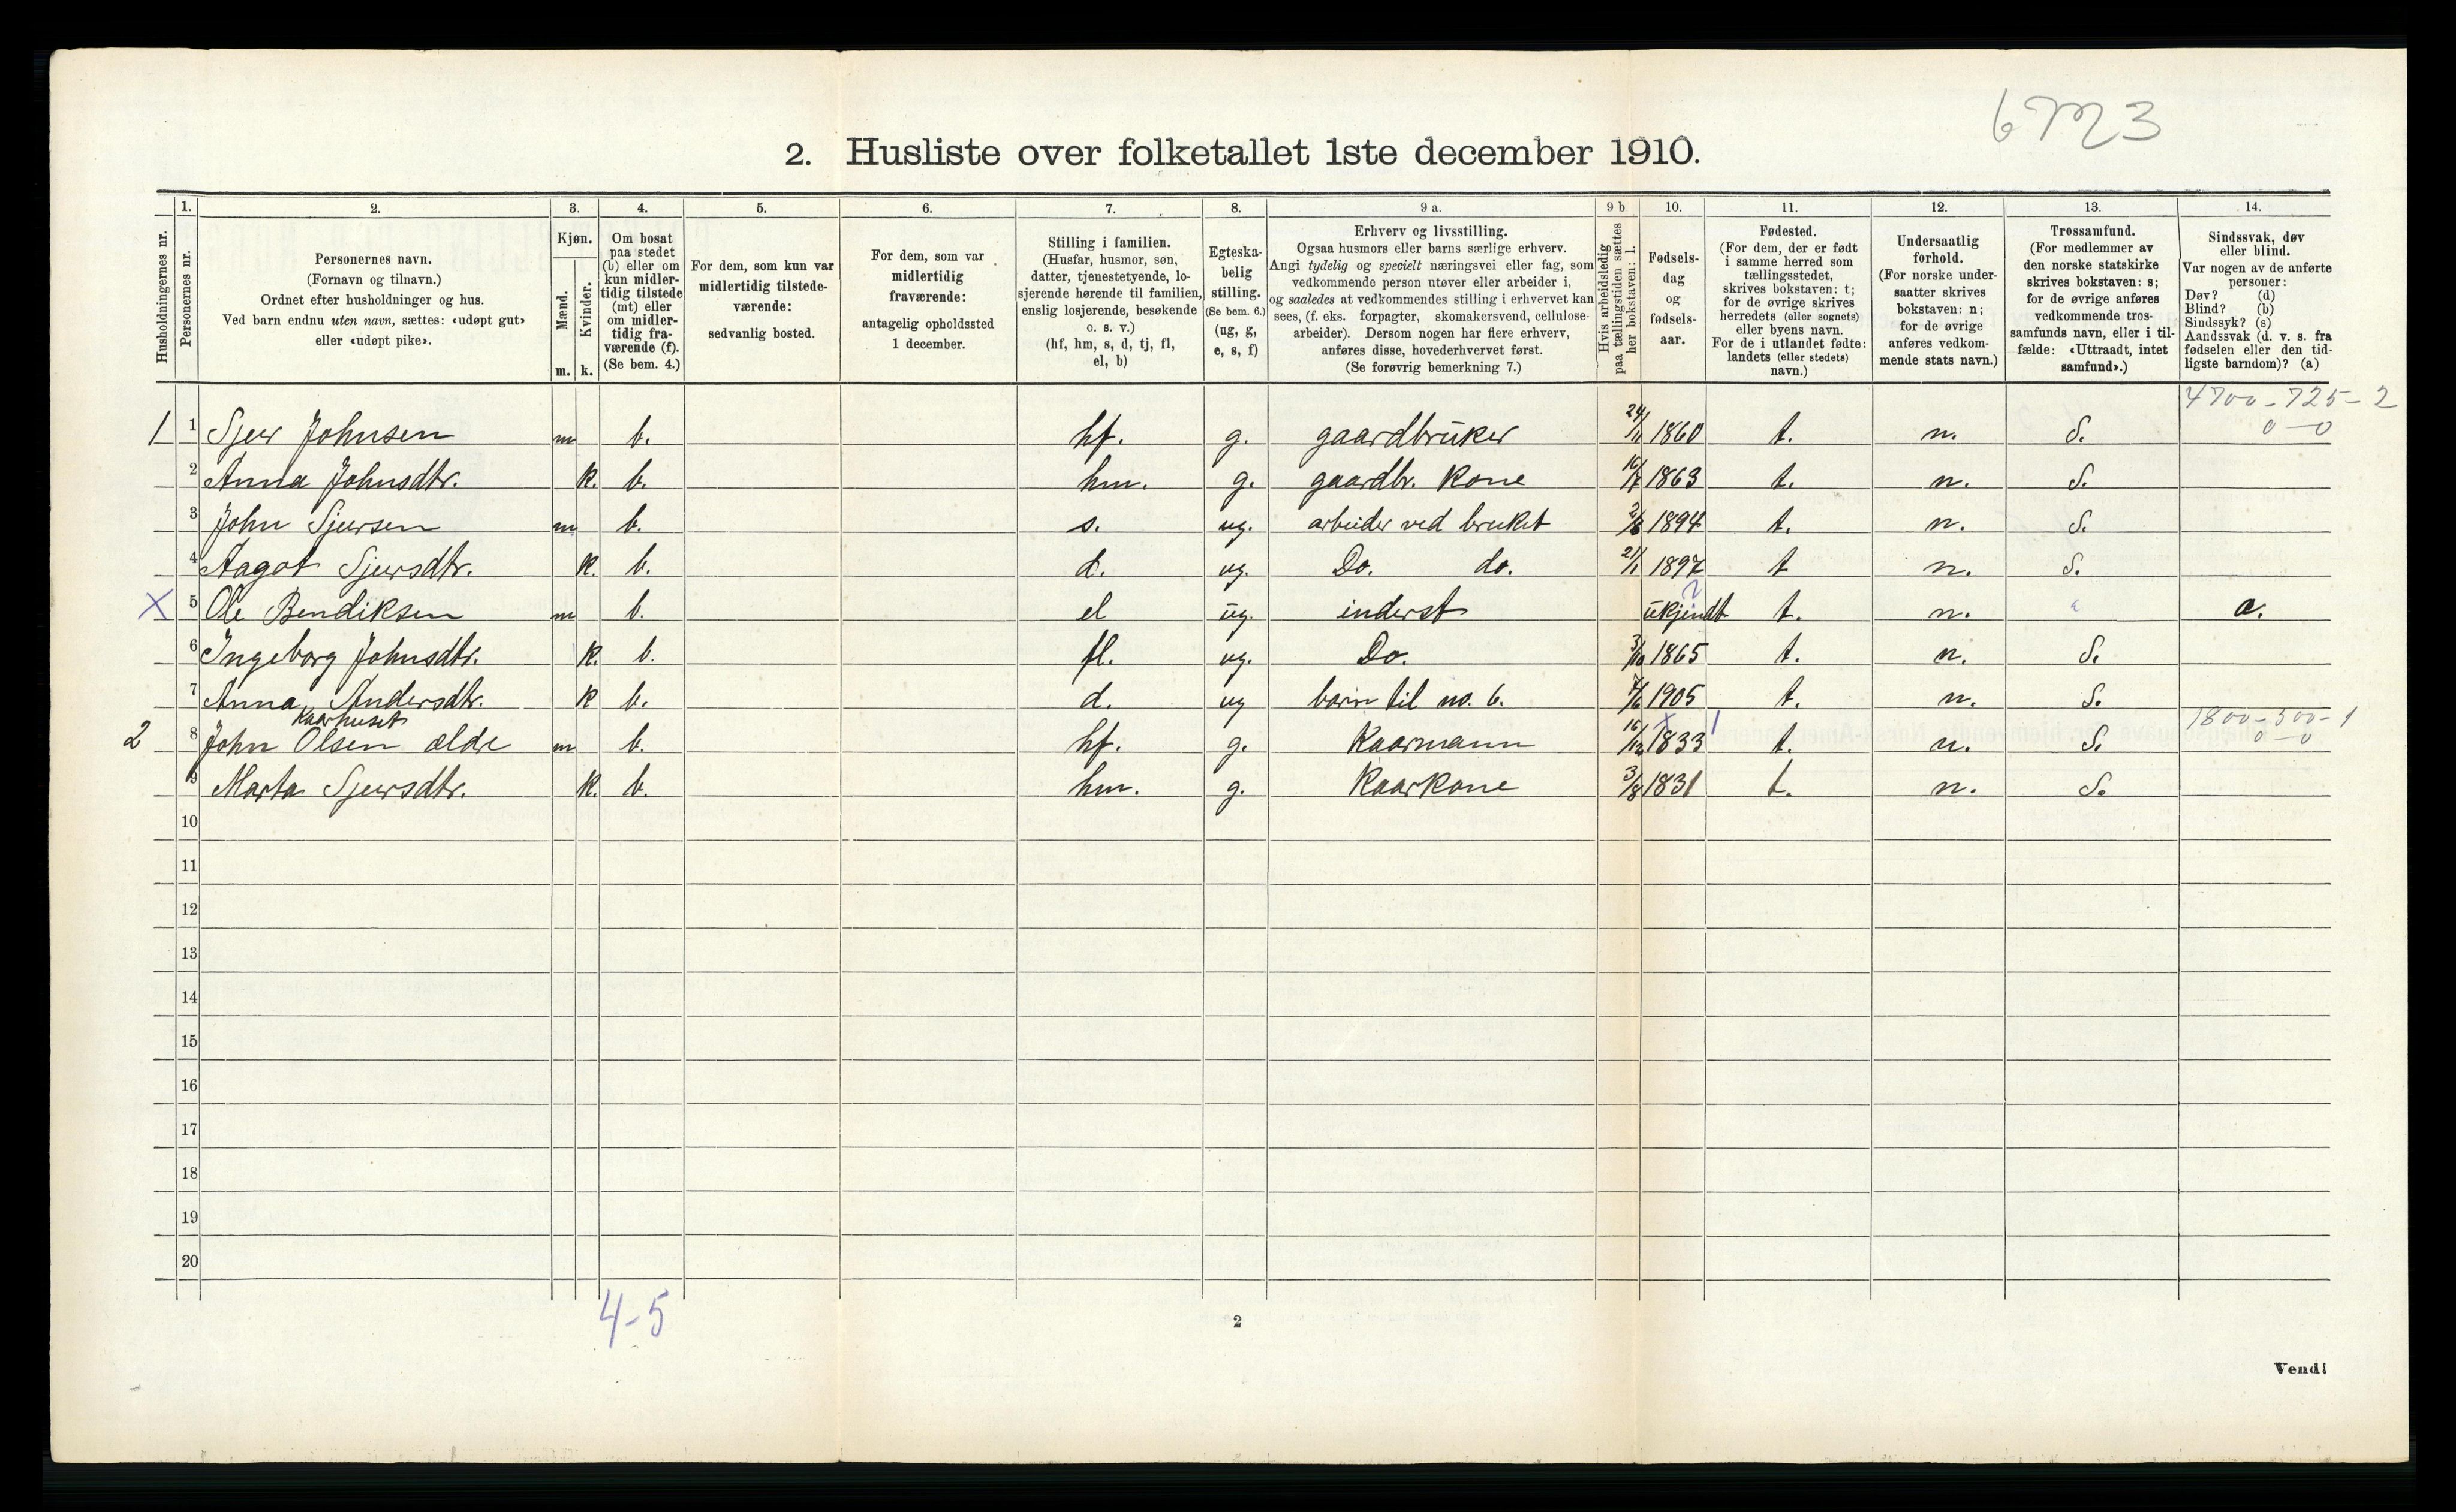 6723
2. Husliste over folketallet 1ste december 1910.
Husholdningernes nr.
1. Personernes nr.
2. Personernes navn. (Fornavn og tilnavn.) Ordnet efter husholdninger og hus. Ved barn endnu uten navn, sættes: «udøpt gut» eller «udøpt pike».
3. Kjøn. Mænd. m. Kvinder. k.
4. Om bosat paa stedet (b) eller om kun midlertidig tilstede (mt) eller om midlertidig fraværende (f). (Se bem. 4.)
5. For dem, som kun var midlertidig tilstedeværende: sedvanlig bosted.
6. For dem, som var midlertidig fraværende: antagelig opholdssted 1 december.
7. Stilling i familien. (Husfar, husmor, søn, datter, tjenestetyende, losjerende hørende til familien, enslig losjerende, besøkende o. s. v.) (hf, hm, s, d, tj, fl, el, b)
8. Egteskabelig stilling. (Se bem. 6.) (ug, g, e, s, f)
9 a. Erhverv og livsstilling. Ogsaa husmors eller barns særlige erhverv. Angi tydelig og specielt næringsvei eller fag, som vedkommende person utøver eller arbeider i, og saaledes at vedkommendes stilling i erhvervet kan sees, (f. eks. forpagter, skomakersvend, cellulosearbeider). Dersom nogen har flere erhverv, anføres disse, hovederhvervet først. (Se forøvrig bemerkning 7.)
9 b Hvis arbeidsledig paa tællingstiden sættes her bokstaven: l.
10. Fødselsdag og fødselsaar.
11. Fødested. (For dem, der er født i samme herred som tællingsstedet, skrives bokstaven: t; for de øvrige skrives herredets (eller sognets) eller byens navn. For de i utlandet fødte: landets (eller stedets) navn.)
12. Undersaatlig forhold. (For norske undersaatter skrives bokstaven: n; for de øvrige anføres vedkommende stats navn.)
13. Trossamfund. (For medlemmer av den norske statskirke skrives bokstaven: s; for de øvrige anføres vedkommende trossamfunds navn, eller i tilfælde: «Uttraadt, intet samfund».)
14. Sindssvak, døv eller blind. Var nogen av de anførte personer: Døv? (d) Blind? (b) Sindssyk? (s) Aandssvak (d. v. s. fra fødselen eller den tidligste barndom)? (a)
4700-725-2
0-0
1 1 Sjur Johnsen m b. hf. g. gaardbruker 24/11 1860 t. n. S.
2 Anna Johnsdtr. k. b. hm. g. gaardbr. Kone 16/7 1863 t. n. S.
3 John Sjursen m b. s. ug. arbeider ved bruket 1894 t. n. S.
4 Aagot Sjursdtr. k. b. d. ug. Do. do. 21/1 1897 t n. S.
X 5 Ole Bendiksen m b. el ug. inderst ukjendt t. n. a.
6 Ingeborg Johnsdtr. k. b. fl. ug. Do. 3/10 1865 t. n. S.
7 Anna Andersdtr. k b. d. ug barn til no. 6. 1905 t. n. S.
Kaarhuset
1800-300-1
0-0
2 8 John Olsen ældre m b. hf. g. Kaarmann 16/12 1833 t. n. S.
9 Marta Sjursdtr. k. b. hm. g. Kaarkone 3/8 1831 t. n. S.
10
11
12
13
14
15
16
17
18
19
20
4-5
2
Vend!